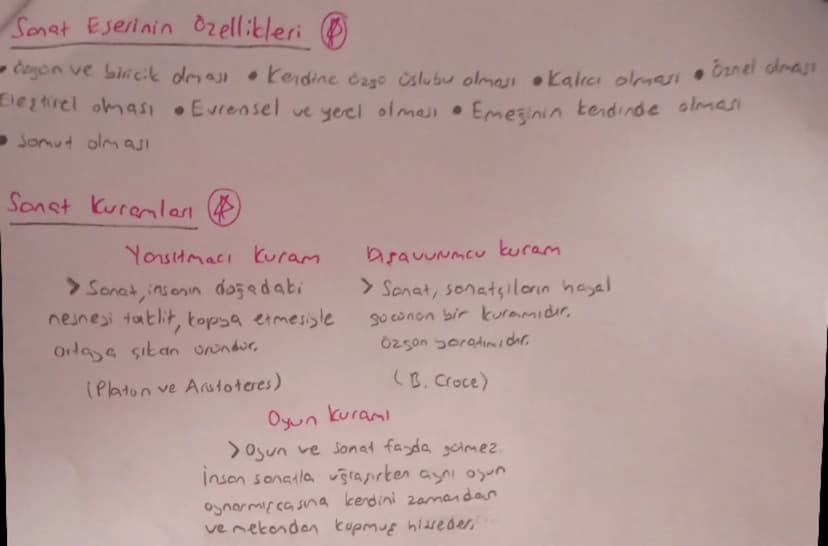 Sanat Eserinin Özellikleri
• özgün ve biricik olması • Kendine özgü üslubu olması • Kalıcı olması • Öznel olması
Eleştirel olması • Evrensel ve yerel olması • Emeğinin kendinde olması
• Somut olması
Sanat Kuramları
Yansıtmacı Kuram
> Sanat, insanın doğadaki
nesneyi taklit, kopya etmesiyle
ortaya çıkan üründür.
(Platon ve Aristoteres)
Dışavurumcu kuram
> Sanat, sanatçıların hayal
gücünün bir kuramıdır.
Özgün yaratımıdır.
(B. Croce)
Oyun kuramı
> Oyun ve sanat fayda gütmez.
İnsan sanatla uğraşırken aynı oyun
oynarmışcasına kendini zamandan
ve mekandan kopmuş hisseder.